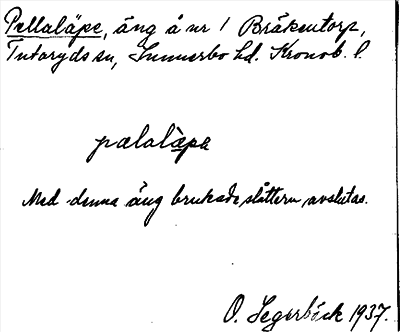 Pellaläpe, äng å nr 1 Bråkentorp,
Tutaryds sn, Sunnerbo hd. Kronob. l.
pælalàpa
Med denna äng brukade slåttern avslutas.
O. Segerbäck 1937.